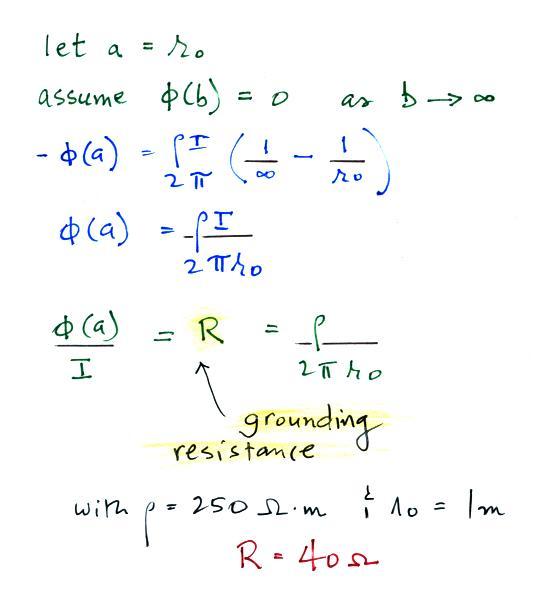 let a = r₀
assume ϕ(b) = 0 as b → ∞
- ϕ(a) = ρI/2π (1/∞ - 1/r₀)
ϕ(a) = ρI/2πr₀
ϕ(a)/I = R = ρ/2πr₀
grounding
resistance
with ρ = 250 Ω·m & r₀ = 1m
R = 40Ω